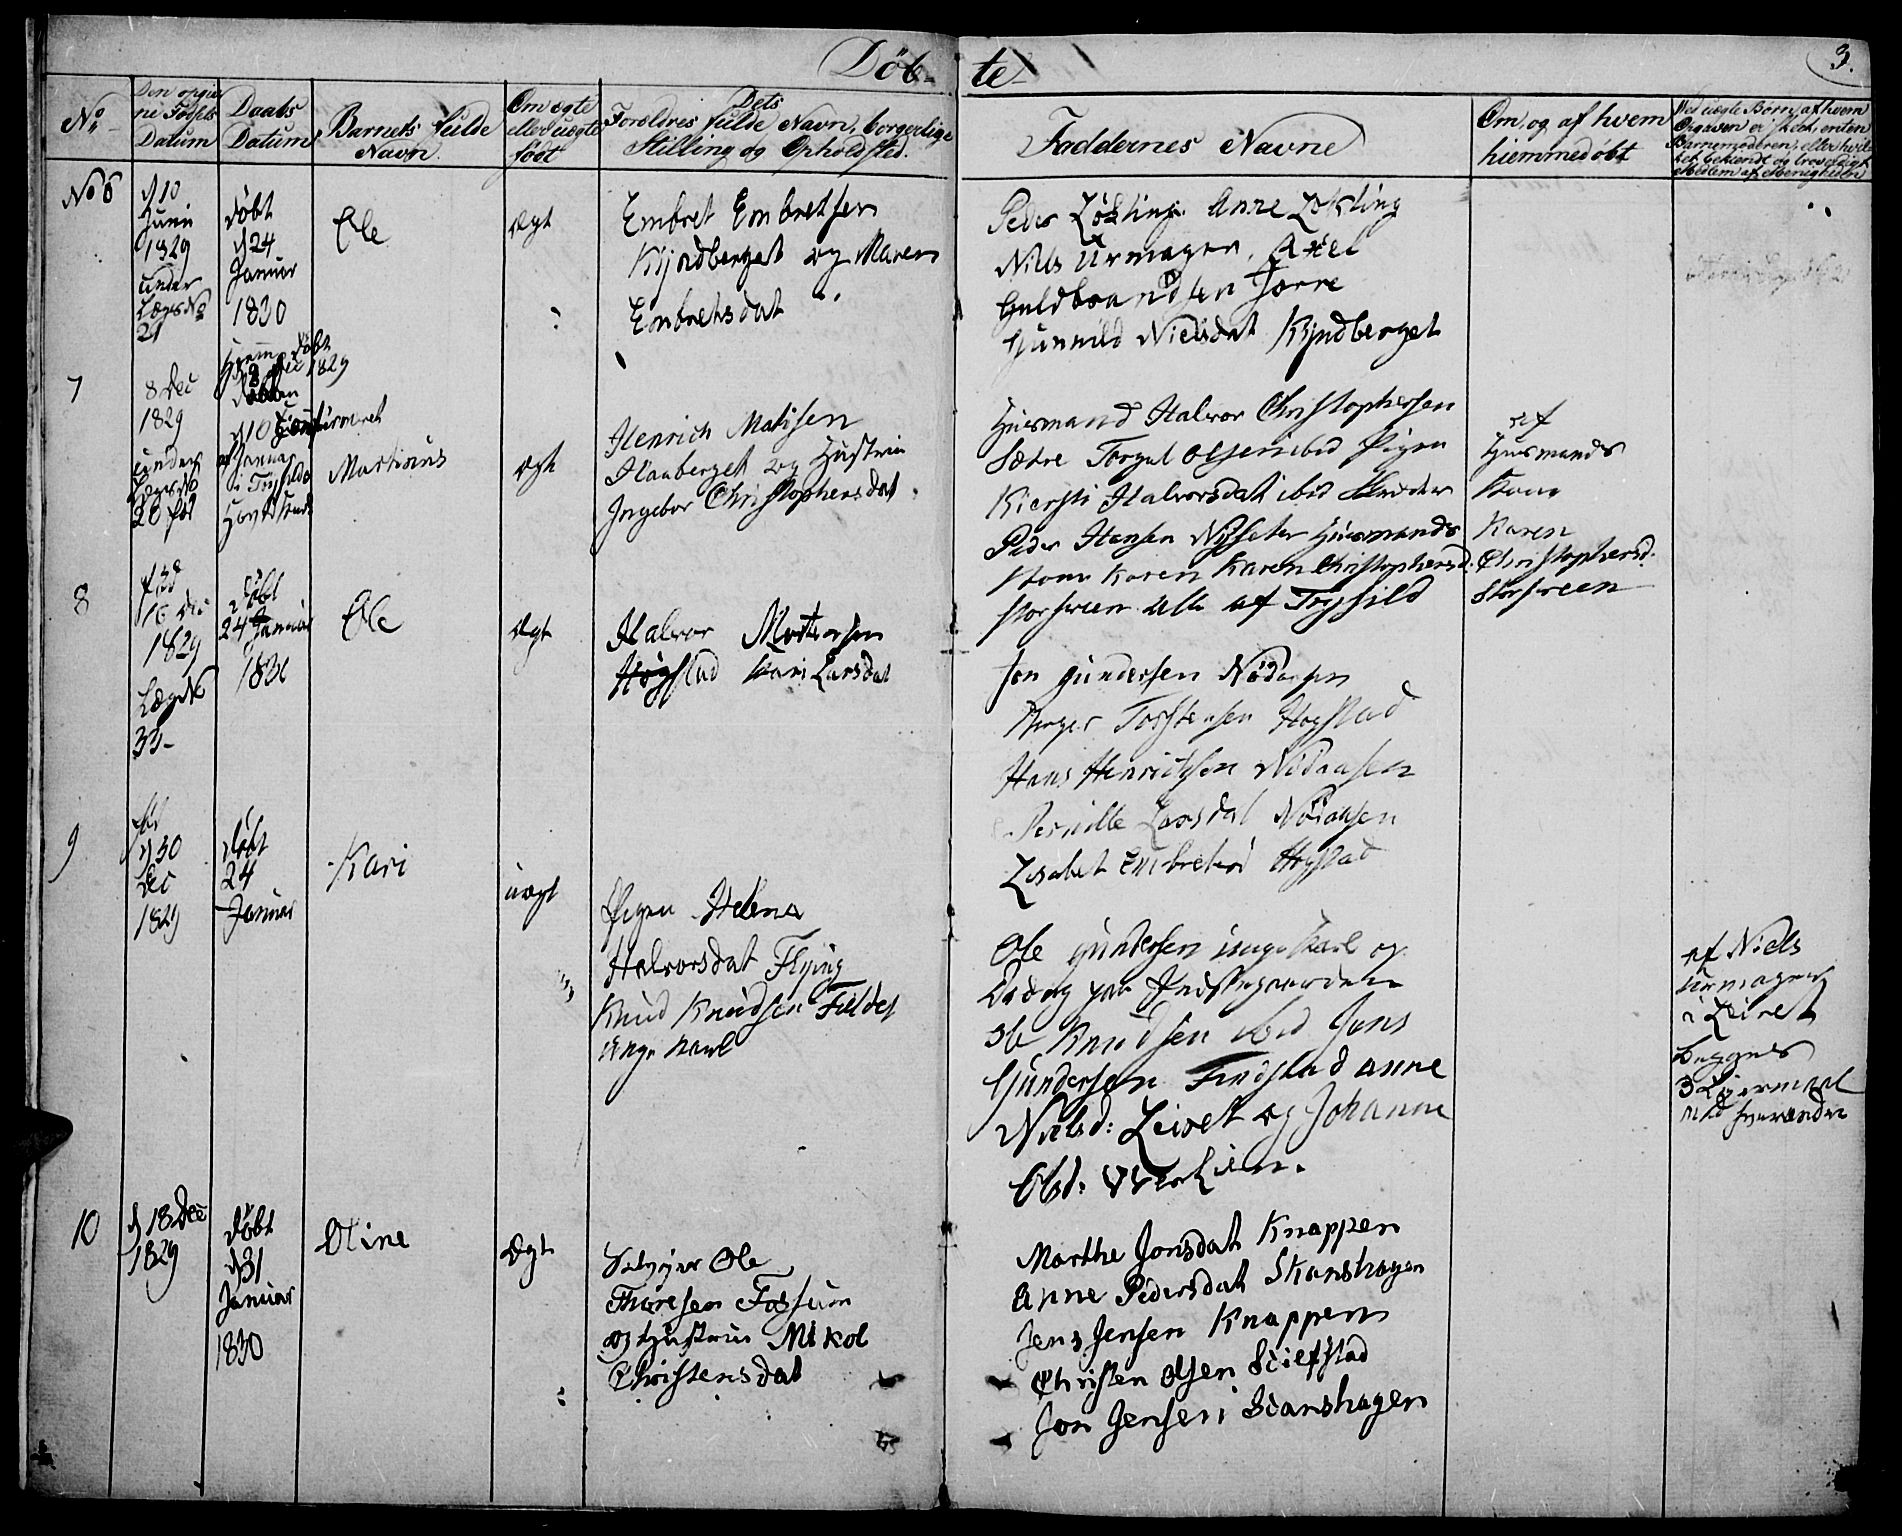 Döb-
te
3.
No
Den opgiv
ne Fødsels
Datum
Daabs
Datum
Barnets fulde
Navn
Om ægte
eller uægte
født
Dets
Forældres fulde Navn, borgerlige
Stilling og Opholdsted.
Faddernes Navne
Om, og af hvem
hiemmedøbt
Ved uægte Børn, af hvem
Opgaven er skeet, enten
Barnemoderen, eller
bekiendt og troværdigt
Medlem af Menigheden
No 6
d 10
Juni
1829
under
Lægs No
21
døbt
d 24
Januar
1830
Ole
Ægt
Embret Embretsen
Kyndberget og Maren
Embretsdat
Peder Løkting Anne Løkting
Niels Urmager, Axel
Guldbrandsen Jorre
Gunnild Nielsdat Kyndberget
7
8 Dec
1829
under
Lægs No
20 fød
Hjemmedøbt
8 Dec 1829
d 10
Januar
i Trysild
Hovedkirke
Martinus
Ægt
Henrich Matisen
Haaberget og Hustrue
Ingebor Christophersdat
Huusmand Halvor Christophersen
Sætre Torgal Olsen ibid Pigen
Kiersti Halvorsdat ibid
Peder Hansen Nysæter Huusmands
Kone Karen Karen Christophersd.
Storsveen alle af Trysild
af
Huusmands
Kone
Karen
Christophersd.
Storsveen
8
fød
16 Dec
1829
Lægs No
33-
døbt
24 Januar
1830
Ole
Ægt
Halvor Mortensen
Høgstad Kari Larsdat
Jon Gundersen Nödaasen
Torstensen Høgstad
Hans Henrichsen Nödaasen
Pernille Larsdat Nödaasen
Lisabet Embretsd Høgstad
9
fød
d 30
Dec
1829
døbt
24
Januar
Kari
uægt
Pigen Helena
Halvorsdat Flying
Knud Knudsen Fieldet
unge Karl
Ole Gundersen unge Karl og
Ole Knudsen ibid Jens
Gundersen Findstad Anne
Nielsd: Leiret og Johanne
Olsd:
af Niels
Urmager
i Leiret
Begges
3 Leiermaal
med hverandre
10
d 18 Dec
1829
døbt
d 31
Januar
1830
Oline
Ægt
Selveier Ole
Thoresen Fossum
og Hustrue Mikol
Christensdat
Marthe Jonsdat Knappen
Anne Pedersdat Skanshagen
Jens Jensen Knappen
Christen Olsen Sciefstad
Jon Jensen Scanshagen